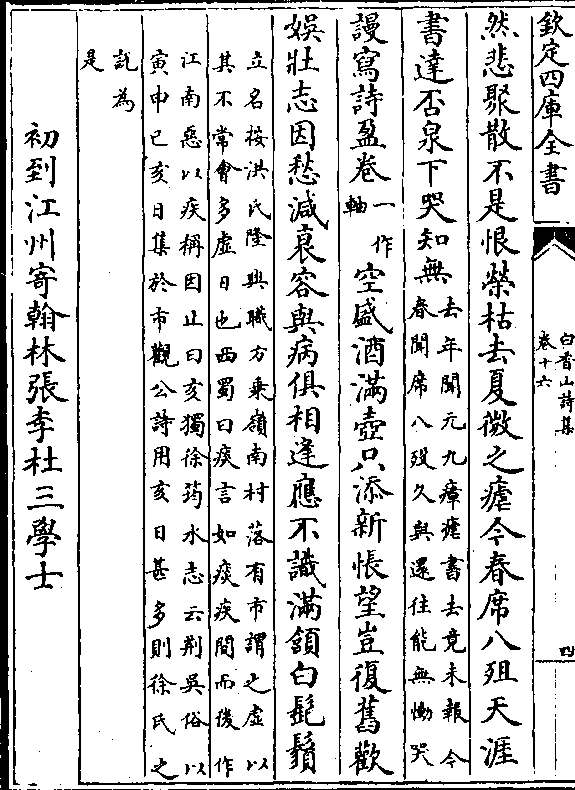 欽定四庫全書
白香山詩集
卷十六
四
然悲聚散不是恨榮枯去夏微之瘧今春席八殂天涯
書達否泉下哭知無
去年聞元九瘴瘧書去竟未報今
春聞席八殁久與還往能無慟哭
謾寫詩盈卷
一作
軸
空盛酒滿壺只添新悵望豈復舊歡
娯壯志因愁減衰容與病俱相逢應不識滿頷白髭鬚
立名按洪氏隆興職方乗嶺南村落有市謂之虛以
其不常會多虛日也西蜀曰痎言如痎疾間而後作
江南惡以疾稱因止曰亥獨徐筠水志云荆吳俗以
寅申巳亥日集於市觀公詩用亥日甚多則徐氏之
説為
是
初到江州寄翰林張李杜三學士